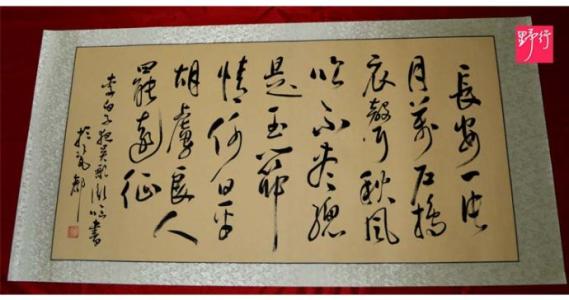 長安一片
月萬戶搗
衣聲秋風
吹不盡總
是玉關
情何日平
胡虜良人
罷遠征
李白子夜吴歌書
野行